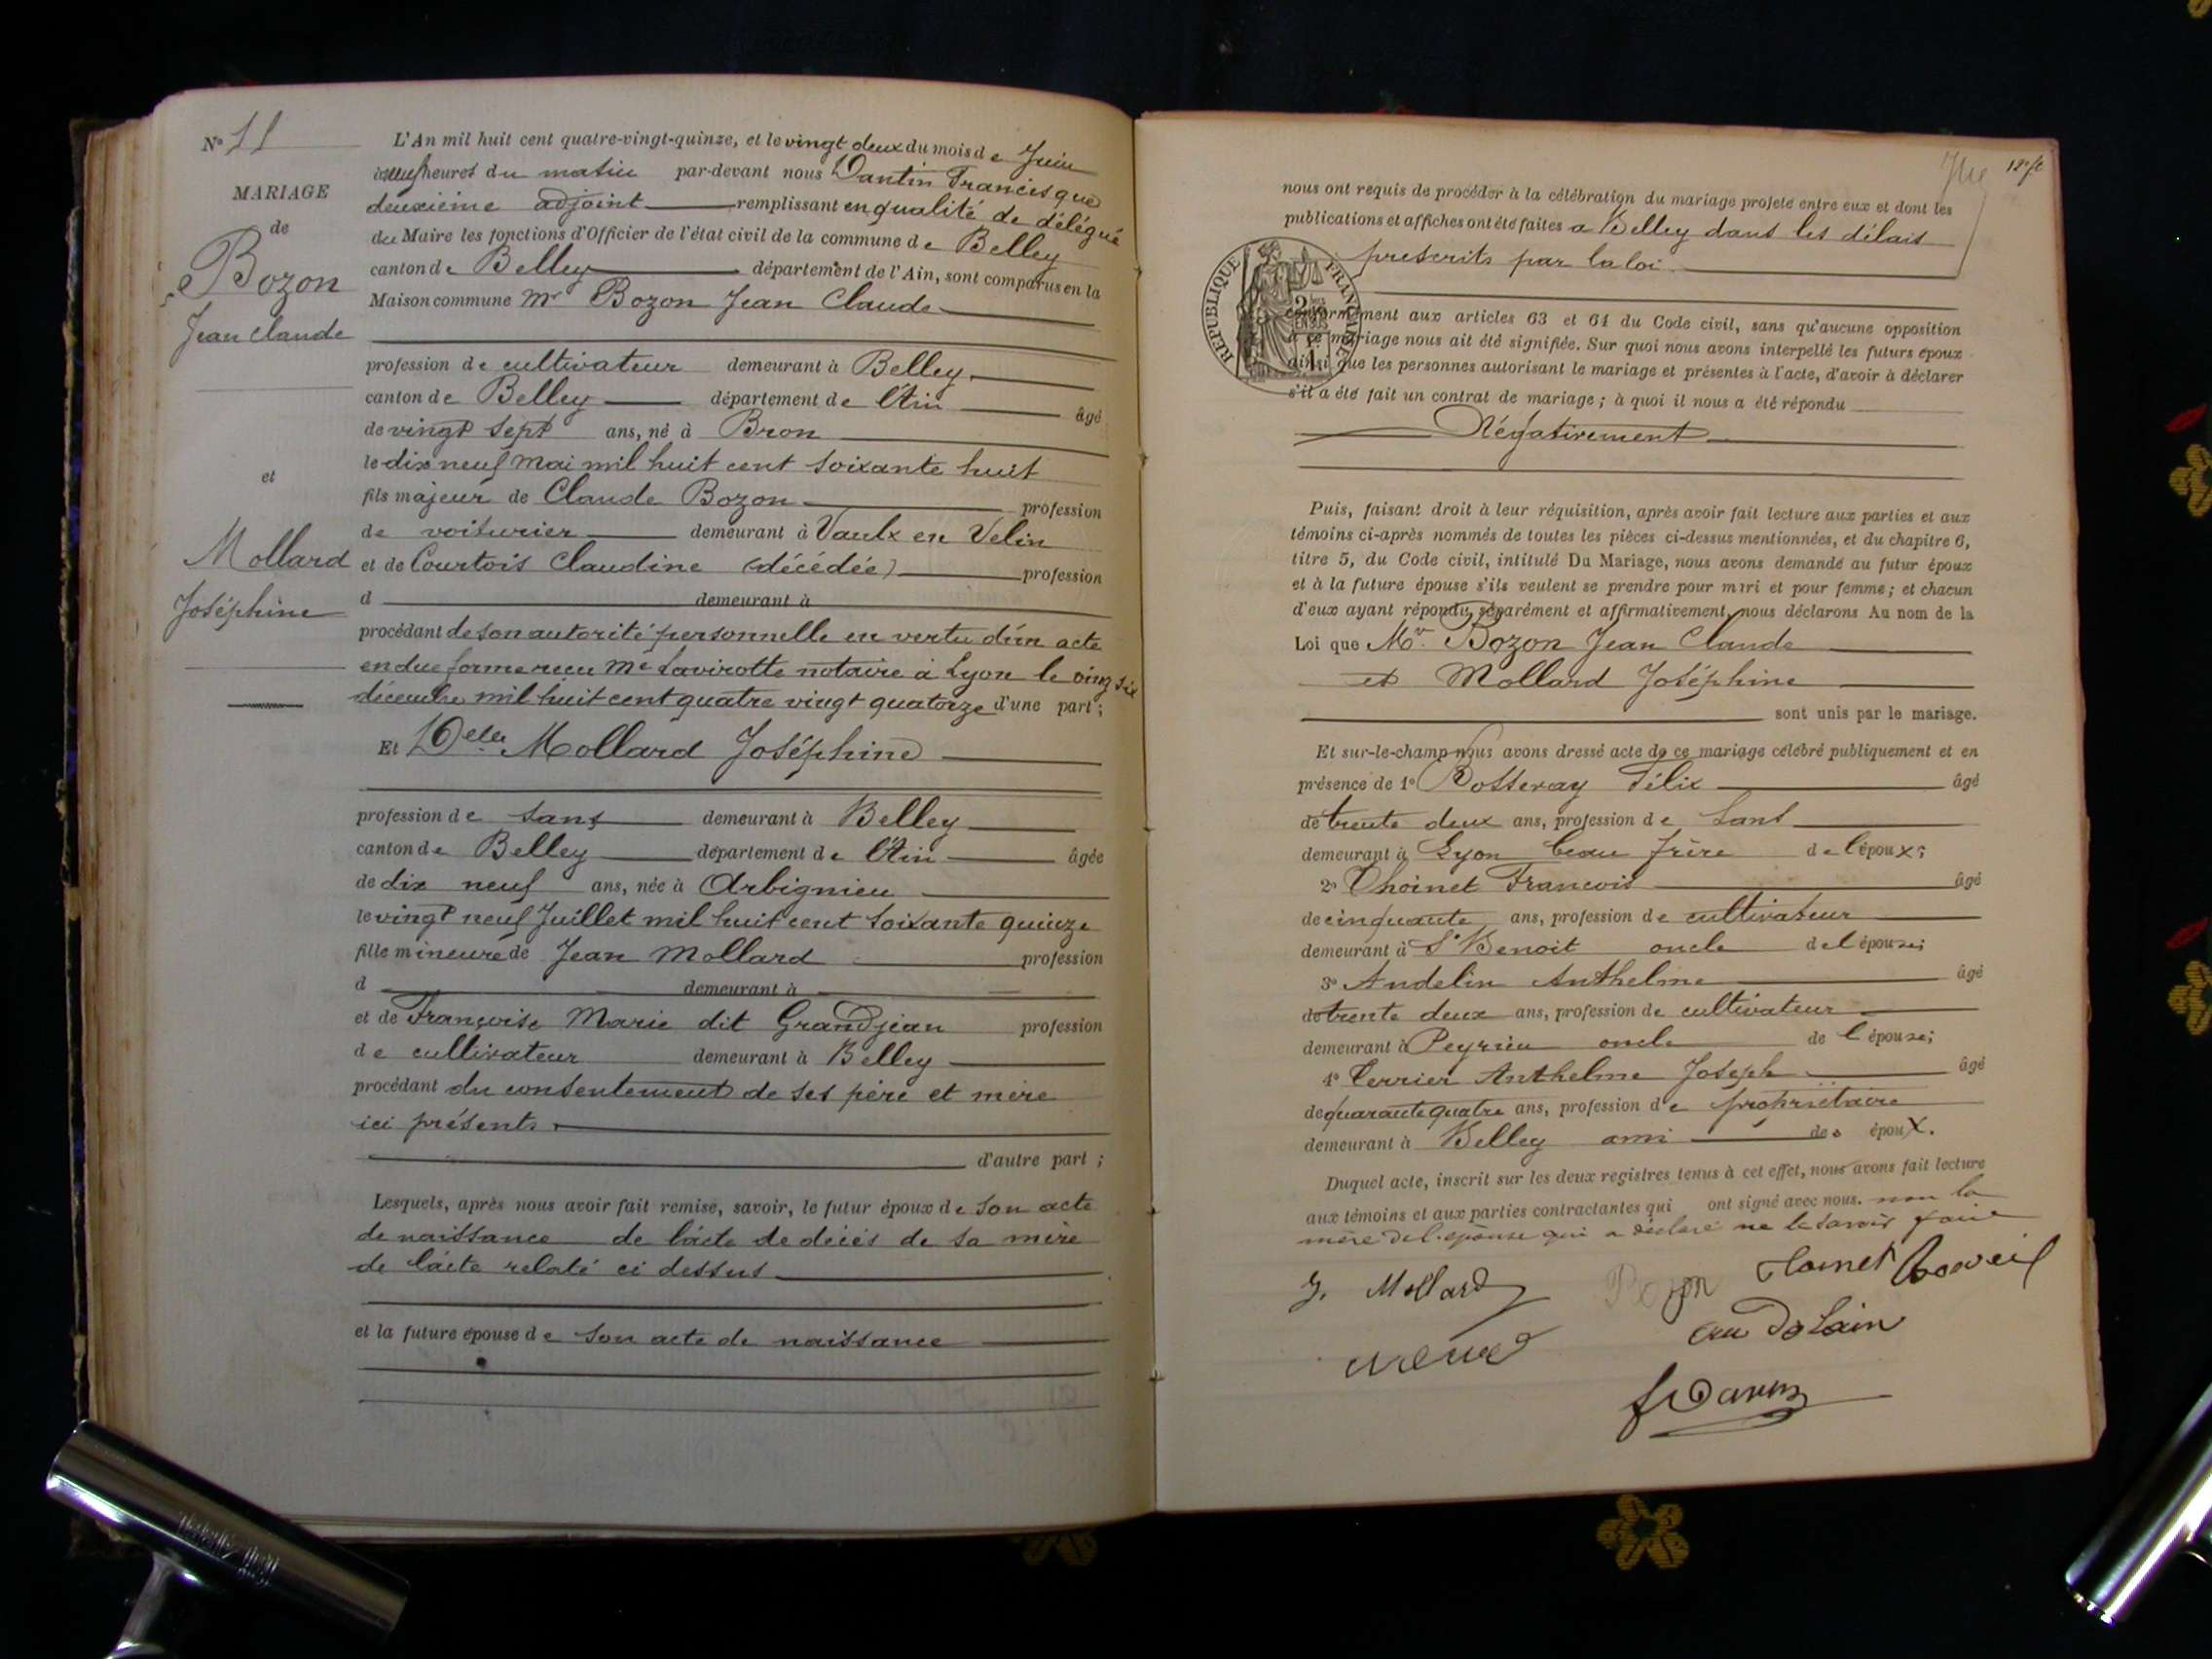 N° 11
MARIAGE
de
Bozon
Jean Claude
et
Mollard
Joséphine
L'An mil huit cent quatre-vingt-quinze, et le vingt deux du mois de Juin
à heures du matin par-devant nous Dantin Francisque
deuxième adjoint remplissant en qualité de délégué
du Maire les fonctions d'Officier de l'état civil de la commune de Belley
canton de Belley département de l'Ain, sont comparus en la
Maison commune Mr Bozon Jean Claude
profession de cultivateur demeurant à Belley
canton de Belley département de l'Ain âgé
de vingt sept ans, né à Bron
le dix neuf Mai mil huit cent soixante huit
fils majeur de Claude Bozon profession
de voiturier demeurant à Vaulx en Velin
et de Courtois Claudine (décédée) profession
d demeurant à
procédant de son autorité personnelle en vertu d'un acte
en due forme reçu Me Lavirotte notaire à Lyon le vingt six
décembre mil huit cent quatre vingt quatorze d'une part ;
Et Delle Mollard Joséphine
profession de sans demeurant à Belley
canton de Belley département de l'Ain âgée
de dix neuf ans, née à Arbignieu
le vingt neuf Juillet mil huit cent soixante quinze
fille mineure de Jean Mollard profession
d demeurant à
et de Françoise Marie dit Grandjean profession
de cultivateur demeurant à Belley
procédant du consentement de ses père et mère
ici présents
d'autre part ;
Lesquels, après nous avoir fait remise, savoir, le futur époux de son acte
de naissance de l'acte de décès de sa mère
de l'acte relaté ci dessus
et la future épouse de son acte de naissance
nous ont requis de procéder à la célébration du mariage projeté entre eux et dont les
publications et affiches ont été faites a Belley dans les délais
prescrits par la loi.
REPUBLIQUE FRANCAISE
conformément aux articles 63 et 64 du Code civil, sans qu'aucune opposition
à ce mariage nous ait été signifiée. Sur quoi nous avons interpellé les futurs époux
ainsi que les personnes autorisant le mariage et présentes à l'acte, d'avoir à déclarer
s'il a été fait un contrat de mariage ; à quoi il nous a été répondu
Négativement
Puis, faisant droit à leur réquisition, après avoir fait lecture aux parties et aux
témoins ci-après nommés de toutes les pièces ci-dessus mentionnées, et du chapitre 6,
titre 5, du Code civil, intitulé Du Mariage, nous avons demandé au futur époux
et à la future épouse s'ils veulent se prendre pour mari et pour femme ; et chacun
d'eux ayant répondu séparément et affirmativement, nous déclarons Au nom de la
Loi que Mr. Bozon Jean Claude
et Mollard Joséphine
sont unis par le mariage.
Et sur-le-champ nous avons dressé acte de ce mariage célébré publiquement et en
présence de 1° Félix âgé
de trente deux ans, profession de sans
demeurant à Lyon beau frère de l'époux ;
2° Thoinet François âgé
de cinquante ans, profession de cultivateur
demeurant à St Benoit oncle de l'épouse ;
3° Andelin Anthelme âgé
de trente deux ans, profession de cultivateur
demeurant à Peyrieu oncle de l'épouse ;
4° Terrier Anthelme Joseph âgé
de quarante quatre ans, profession de propriétaire
demeurant à Belley ami des époux.
Duquel acte, inscrit sur les deux registres tenus à cet effet, nous avons fait lecture
aux témoins et aux parties contractantes qui ont signé avec nous. non la
mère de l'épouse qui a déclaré ne le savoir faire
J. Mollard Bozon